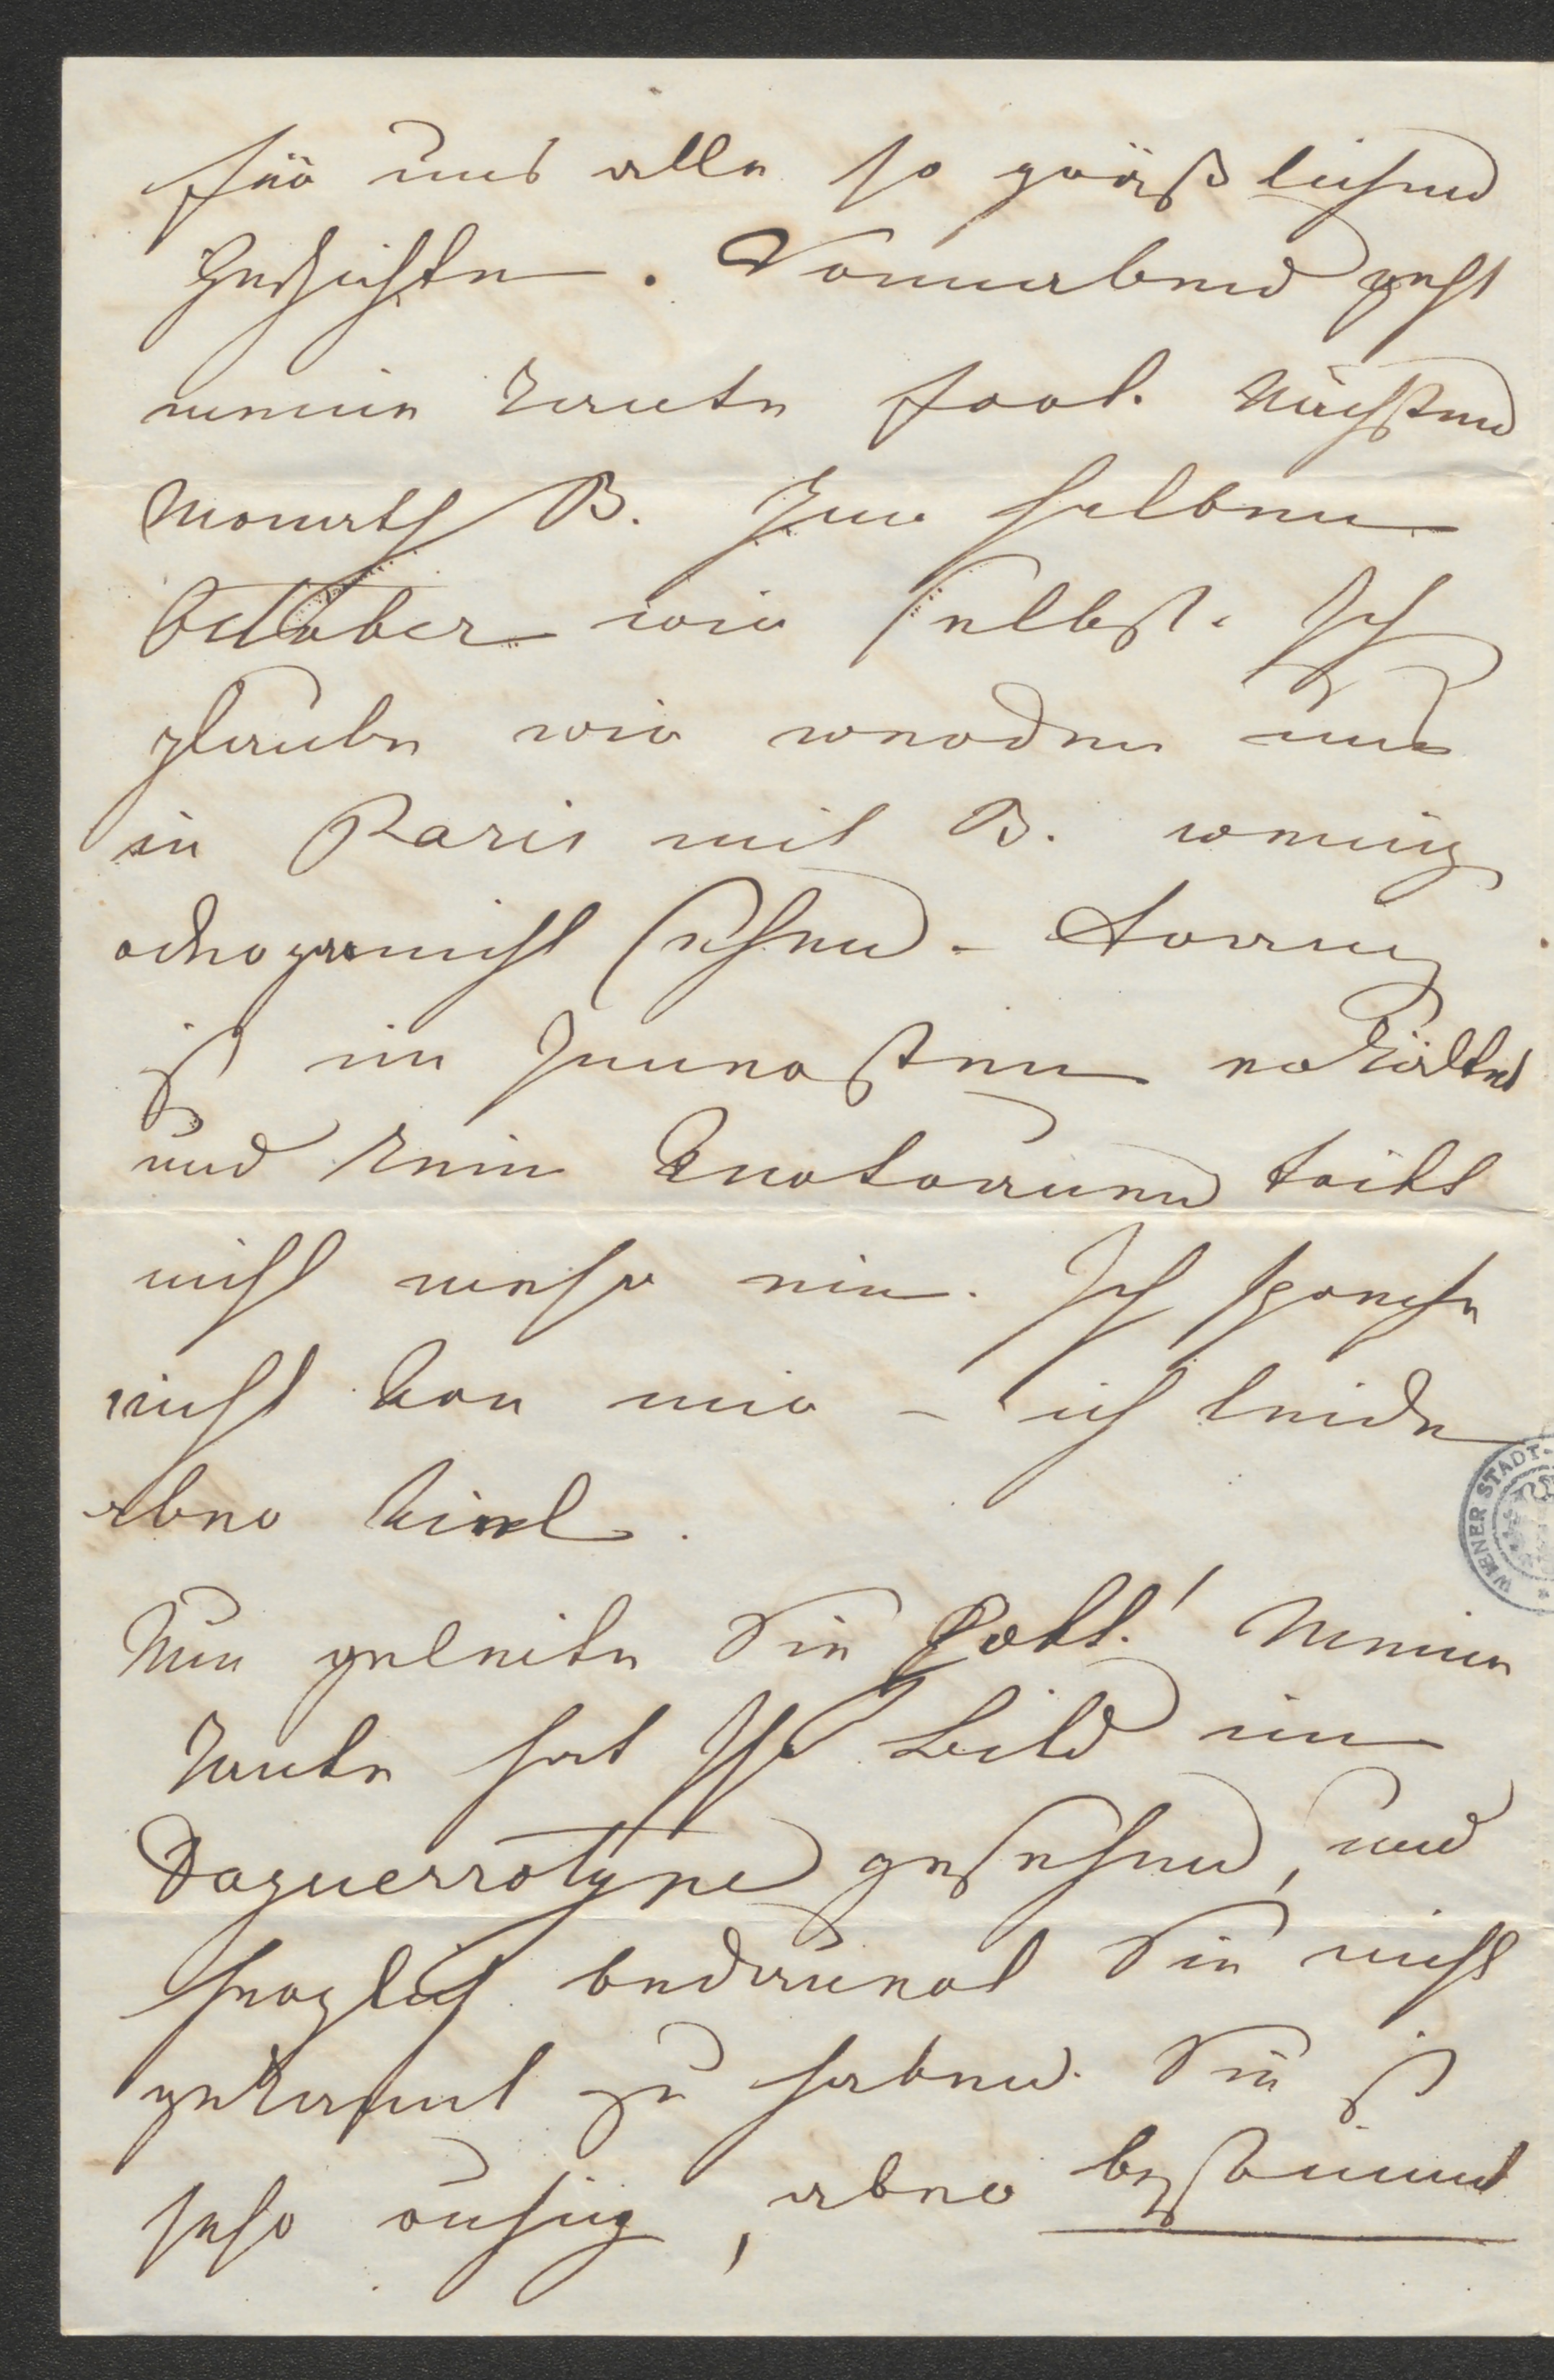 für uns alle so gräßlichen
Geschichte. Sonnabend geht
meine Tante fort. Nächsten
Monath B. Zum halben
October wir selbst. Ich
glaube wir werden uns
in Paris mit B. wenig
oder gar nicht sehen. Traun
ist im Innersten erkältet
und kein Vertrauen tritt
nicht mehr ein. Ich spreche
nicht von mir – ich leide
aber viel.
Nun geleite Sie Gott! Meine
Tante hat Ihr Bild im
Daguerrotype gesehen, und
herzlich bedauert Sie nicht
gekannt zu haben. Sie ist
sehr ruhig, aber bestimmt
WIENER STADT-